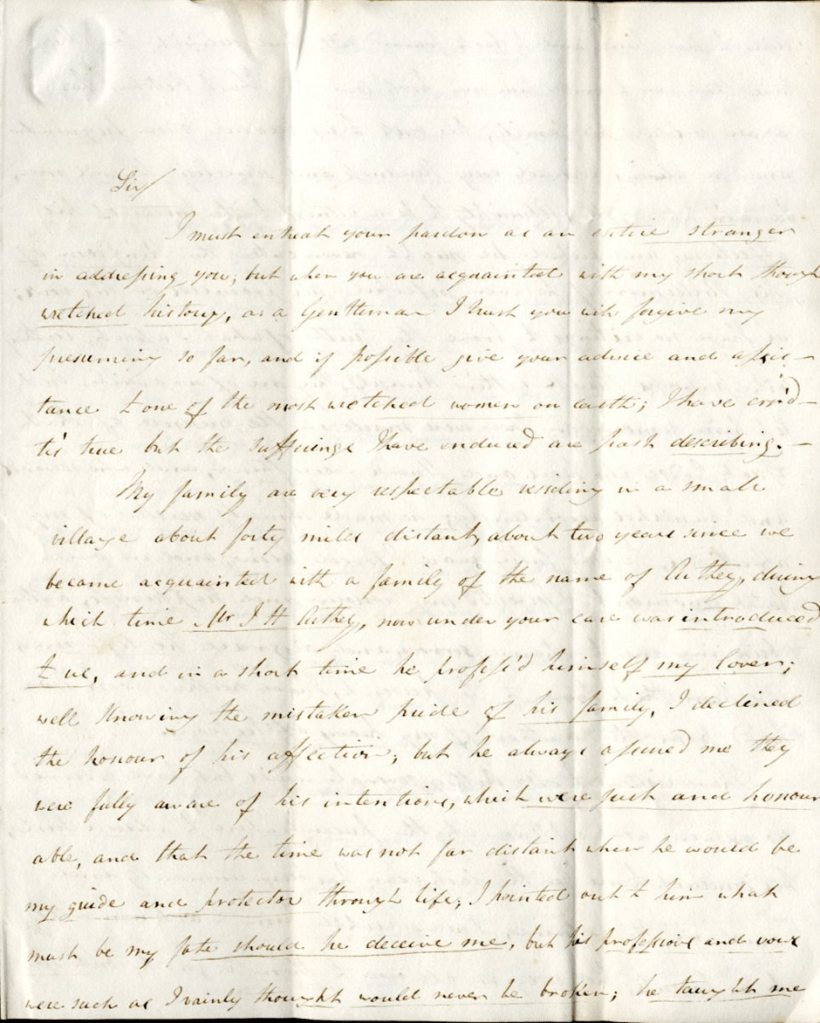 Sir/
I must entreat your pardon as an entire stranger
in addressing you; but when you are acquainted with my short though
wretched history, as a Gentleman I trust you will forgive my
presuming so far, and if possible give your advice and assis-
tance to one of the most wretched women on earth; I have err'd-
tis' true but the sufferings I have endured are past describing. -
My family are very respectable residing in a small
village about forty miles distant, about two years since we
became acquainted with a family of the name of Athey, during
which time Mr J H Athey, now under your care was introduced
to us, and in a short time he profess'd himself my lover;
well knowing the mistaken pride of his family, I declined
the honour of his affection; but he always assured me they
were fully aware of his intentions, which were just and honour
able, and that the time was not far distant when he would be
my guide and protector through life; I pointed out to him what
must be my fate should he deceive me, but his professions and vows
were such as I vainly thought would never be broken; he taught me